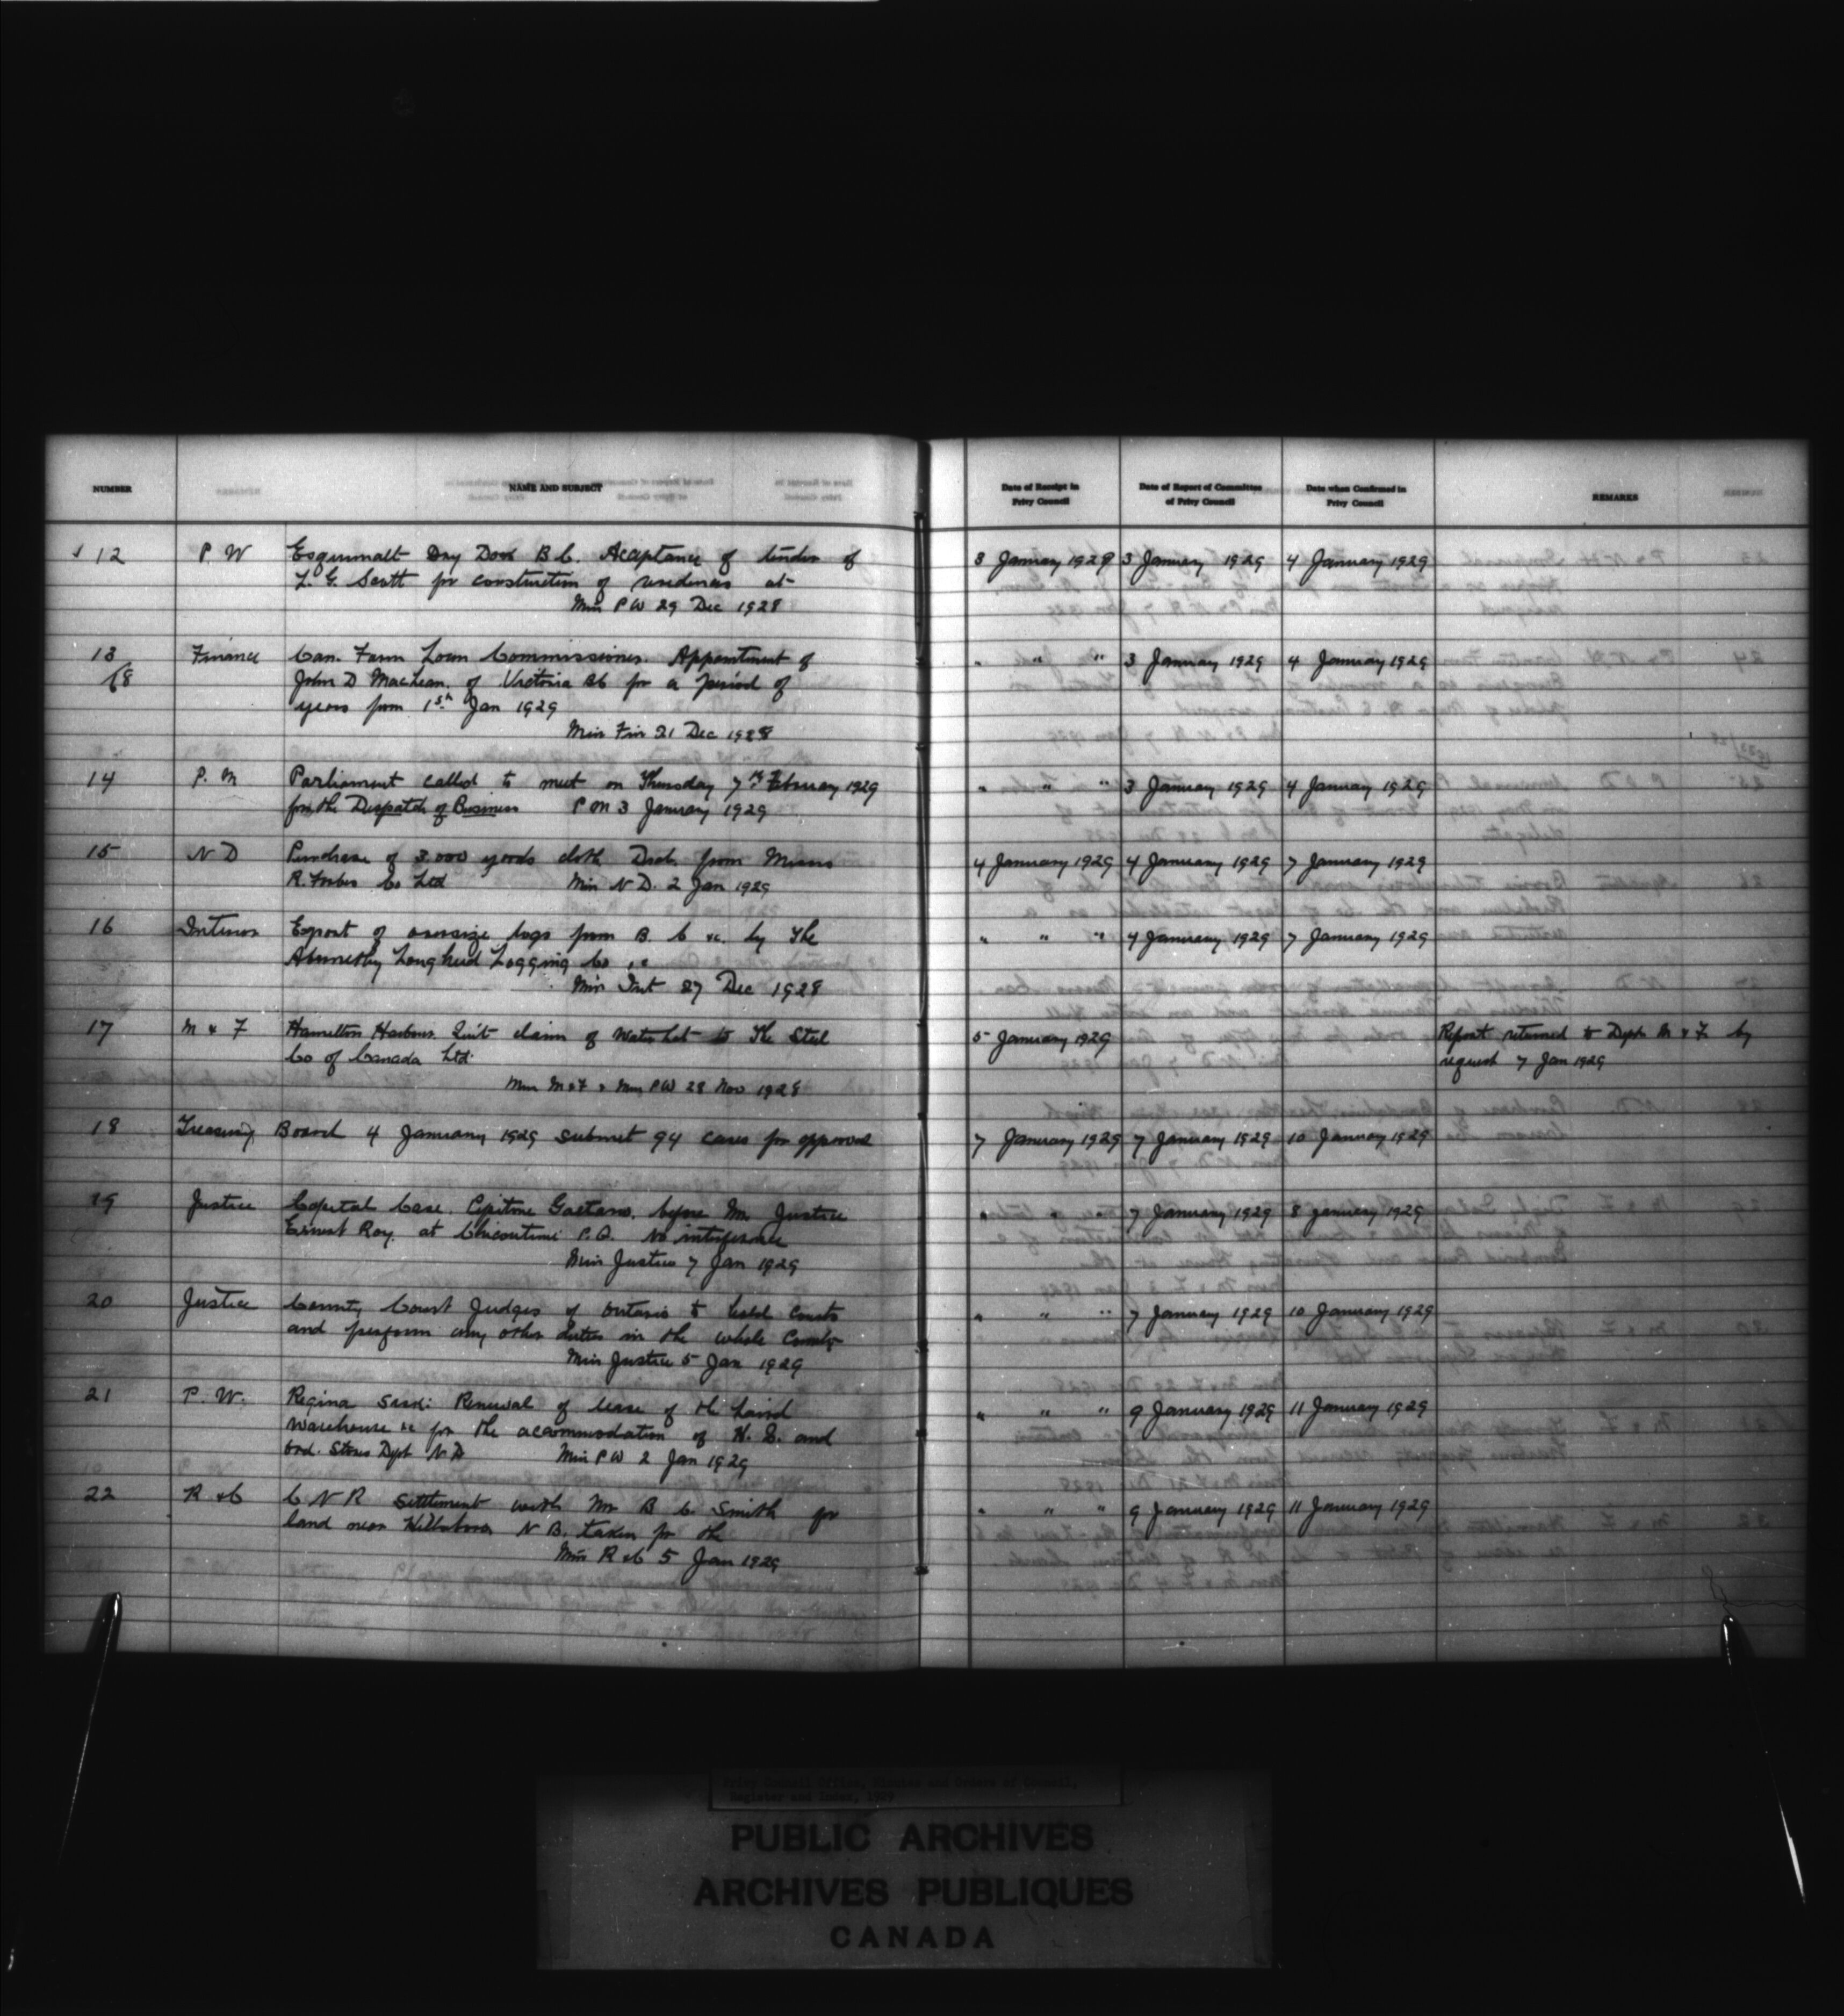 NUMBER NAME AND SUBJECT Date of Receipt in Privy Council Date of Report of Committee of Privy Council Date when Confirmed in Privy Council REMARKS
12 P. W Esquimalt Dry Dock B C. Acceptance of tender of 3 January 1929 3 January 1929 4 January 1929
L. G. Scott for construction of residences at
Min P W 29 Dec 1928
13 Finance Can. Farm Loan Commissioner. Appointment of " " " 3 January 1929 4 January 1929
68 John D MacLean. of Victoria BC for a period of
years from 1st Jan 1929
Min Fin 21 Dec 1928
14 P. M Parliament called to meet on Thursday 7th February 1929 " " " 3 January 1929 4 January 1929
for the Despatch of Business P M 3 January 1929
15 N D Purchase of 3.000 yards cloth Drab from Messrs 4 January 1929 4 January 1929 7 January 1929
R. Forbes Co Ltd Min N D. 2 Jan 1929
16 Interior Export of oversize logs from B. C &c. by The " " " 4 January 1929 7 January 1929
Abernethy Lougheed Logging Co
Min Int 27 Dec 1928
17 M & F Hamilton Harbour Quit claim of Water Lot to The Steel 5 January 1929 Report returned to Dept M & F by
Co of Canada Ltd. request 7 Jan 1929
Min M & F & Min P W 28 Nov 1928
18 Treasury Board 4 January 1929 submit 94 cases for approval 7 January 1929 7 January 1929 10 January 1929
19 Justice Capital Case. Gaetano. before Mr. Justice " " " 7 January 1929 8 January 1929
Ernest Roy. at Chicoutimi P. Q. No interference
Min Justice 7 Jan 1929
20 Justice County Court Judges of Ontario to hold Courts " " " 7 January 1929 10 January 1929
and perform any other duties in the whole County
Min Justice 5 Jan 1929
21 P. W. Regina Sask: Renewal of lease of the Laird " " " 9 January 1929 11 January 1929
Warehouse &c for the accommodation of H. Q. and
Ord. Stores Dept N D Min P W 2 Jan 1929
22 R & C C N R Settlement with Mr B C. Smith for " " " 9 January 1929 11 January 1929
land near N B. taken for the
Min R & C 5 Jan 1929
Privy Council Office, Minutes and Orders of Council,
Register and Index, 1929
PUBLIC ARCHIVES
ARCHIVES PUBLIQUES
CANADA